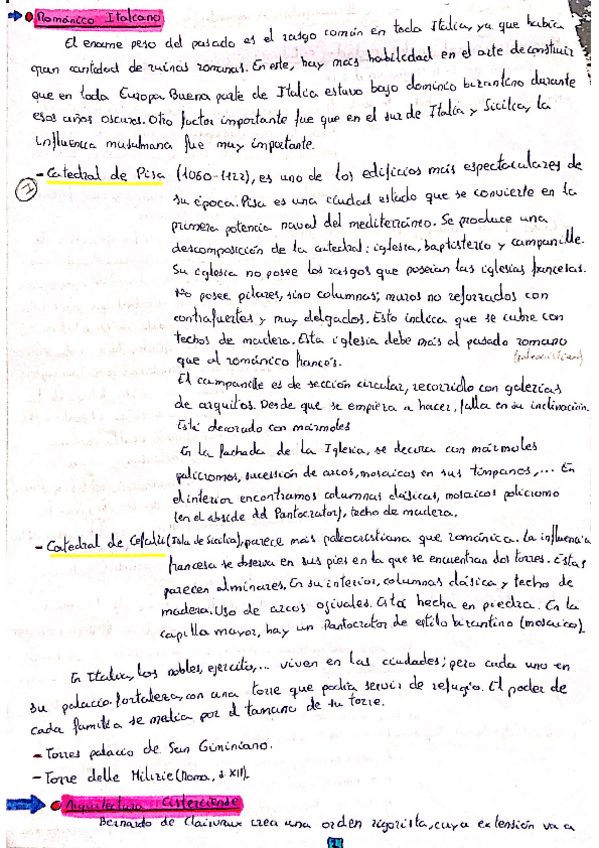 Románico Italiano
El enorme peso del pasado es el rasgo común en toda Italia, ya que había
gran cantidad de ruinas romanas. En este, hay más habilidad en el arte de construir
que en toda Europa. Buena parte de Italia estuvo bajo dominio bizantino durante
esos años oscuros. Otro factor importante fue que en el sur de Italia y Sicilia, la
influencia musulmana fue muy importante.
- Catedral de Pisa (1060-1122), es uno de los edificios más espectaculares de
1
su época. Pisa es una ciudad estado que se convierte en la
primera potencia naval del mediterráneo. Se produce una
descomposición de la catedral: iglesia, baptisterio y campanille.
Su iglesia no posee los rasgos que poseían las iglesias francesas.
No posee pilares, sino columnas; muros no reforzados con
contrafuertes y muy delgados. Esto indica que se cubre con
techos de madera. Esta iglesia debe más al pasado romano
que al románico francés. (paleocristiano)
El campanille es de sección circular, recorrido con galerías
de arquitos. Desde que se empieza a hacer, falla en su inclinación.
Está decorado con mármoles
En la fachada de la Iglesia, se decora con mármoles
policromos, sucesión de arcos, mosaicos en sus tímpanos,... En
el interior encontramos columnas clásicas, mosaico policromo
(en el abside del Pantocrator), techo de madera.
- Catedral de Cefalú (Isla de Sicilia), parece más paleocristiana que románica. La influencia
francesa se observa en sus pies en la que se encuentran dos torres. Estas
parecen alminares. En su interior, columnas clásica y techo de
madera. Uso de arcos ojivales. Está hecha en piedra. En la
capilla mayor, hay un Pantocrator de estilo bizantino (mosaico)
En Italia, los nobles, ejército,... viven en las ciudades; pero cada uno en
su palacio fortaleza, con una torre que podía servir de refugio. El poder de
cada familia se medía por el tamaño de su torre.
- Torres palacio de San Giminiano.
- Torre delle Milizie (Roma, s XII).
Arquitectura Cisterciense
Bernardo de Clairvaux crea una orden rigorista, cuya extensión va a